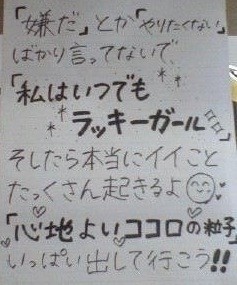 「嫌だ」とか「やりたくない」
ばかり言ってないで、
「私はいつでも
ラッキーガール」
そしたら本当にイイこと
たっくさん起きるよ
「心地よいココロの粒子」
いっぱい出して行こう!!